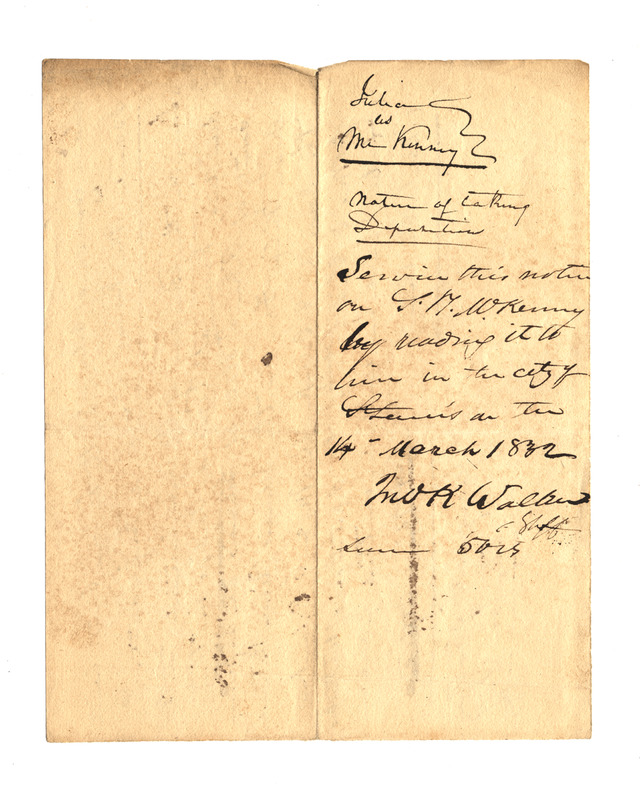 Julia
vs
McKenney
Notice of taking
Deposition
Servd this notice
on S. T. McKenny
by reading it to
him in the city of
St Louis on the
14th March 1832
Jno K Walker
Shff
50 cts